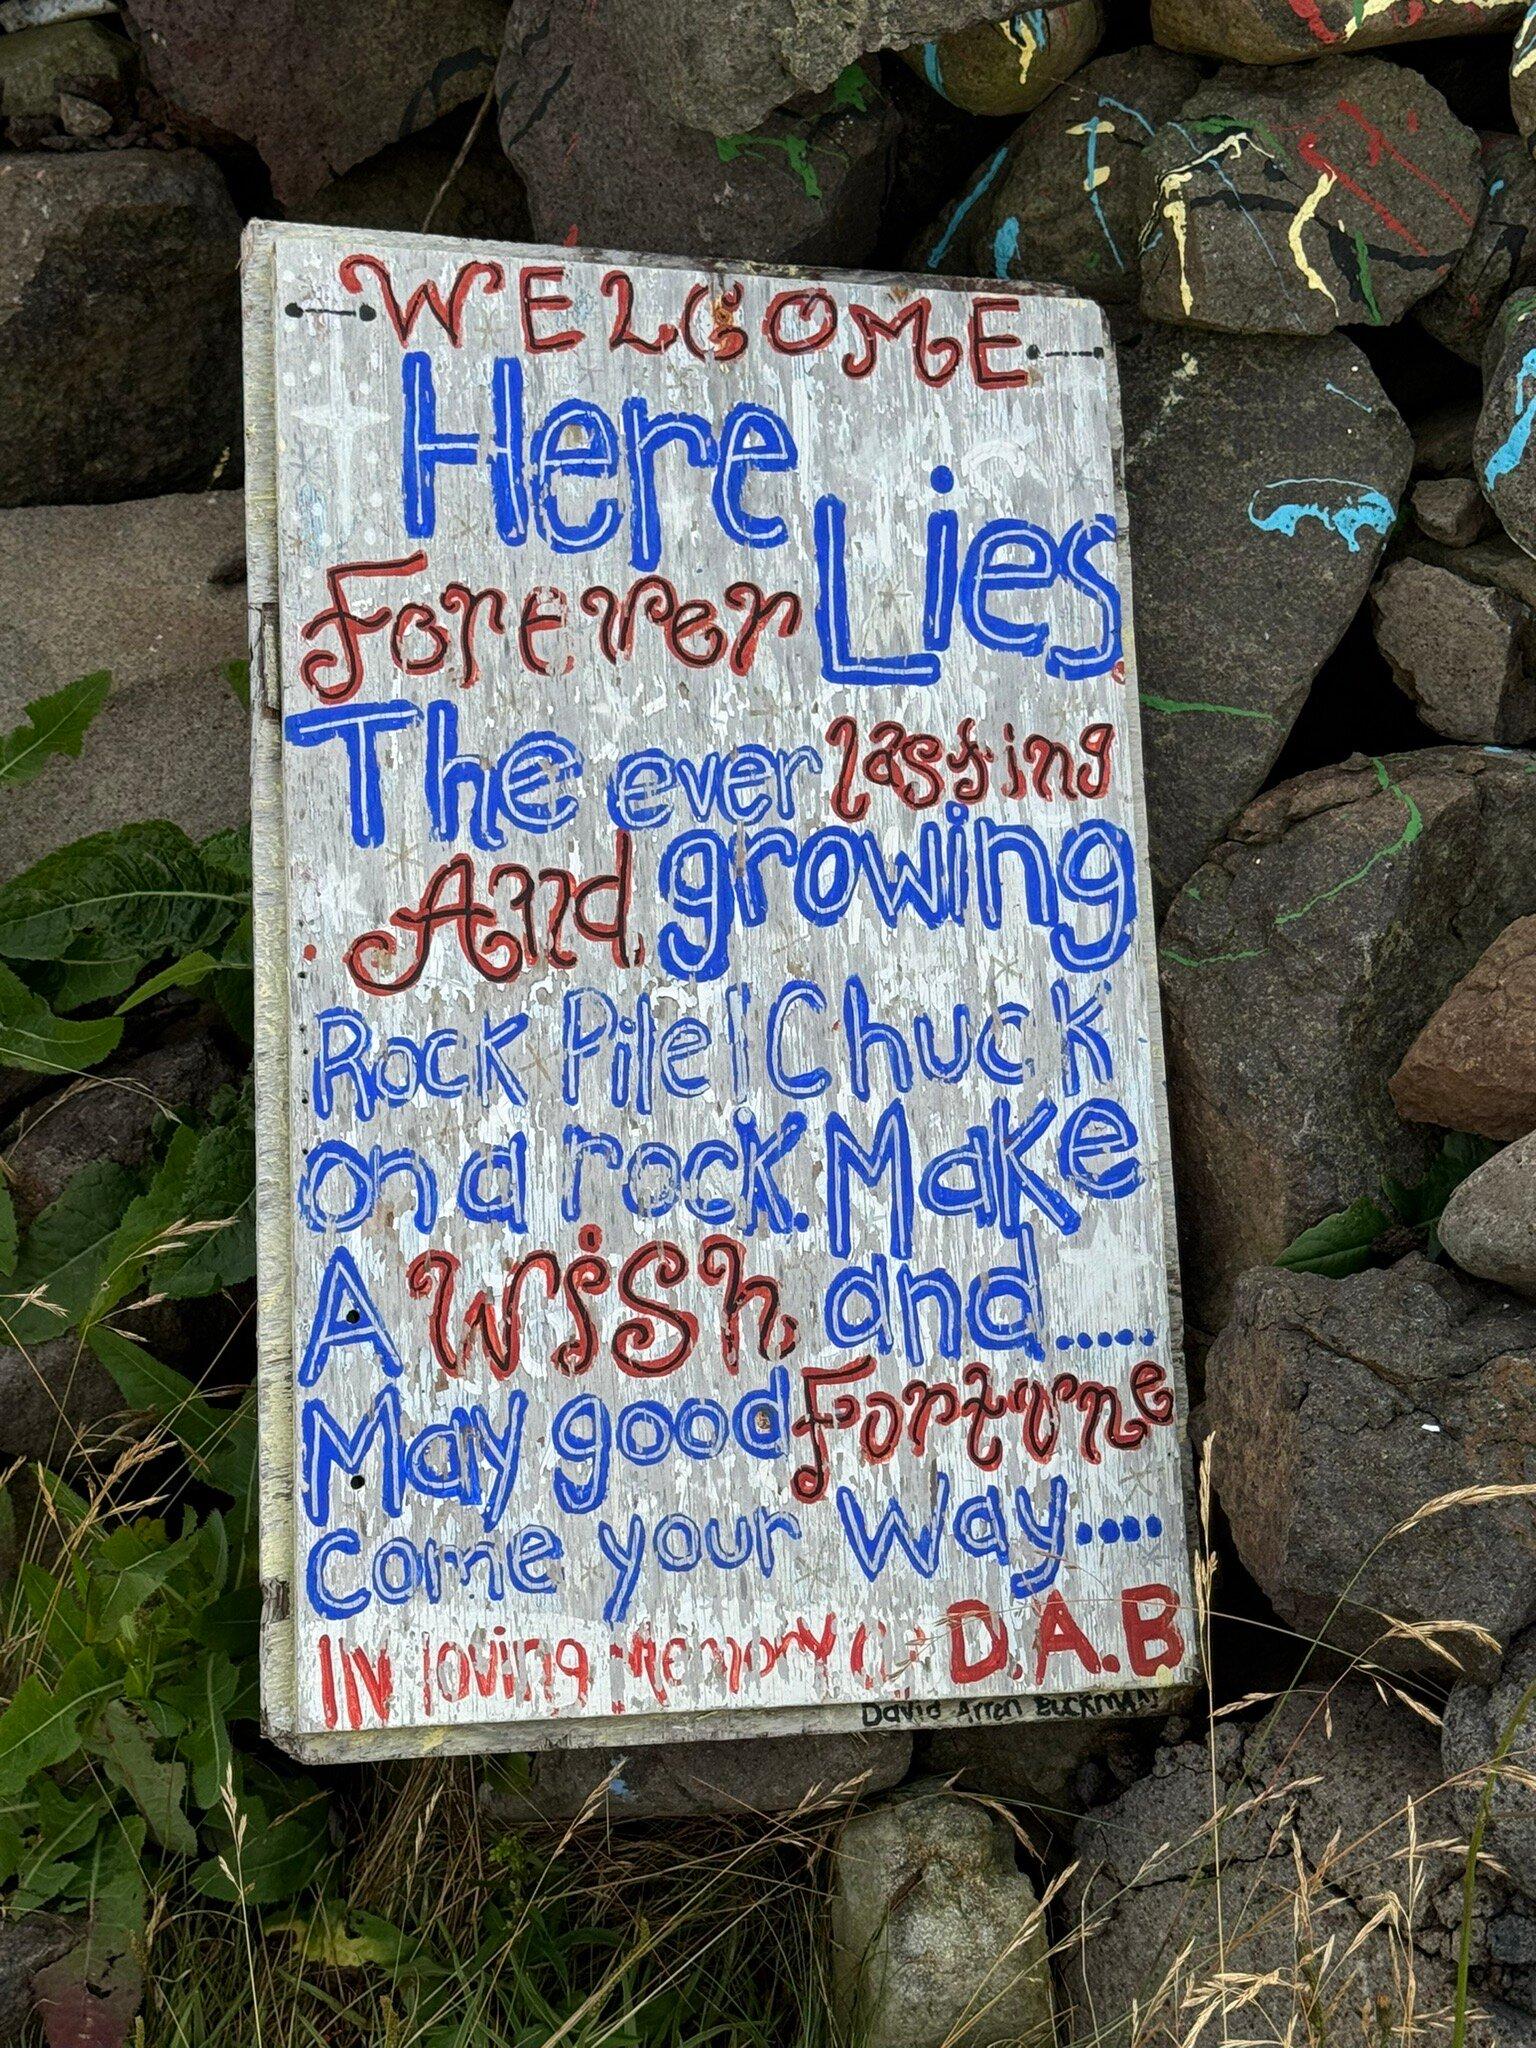 WELCOME
Here Lies
Forever
The ever lasting
And growing
Rock Pile! Chuck
on a rock. Make
A Wish. and.....
May good Fortune
come your Way....
IN loving Memory of D.A.B
David Arran BUCKMAN